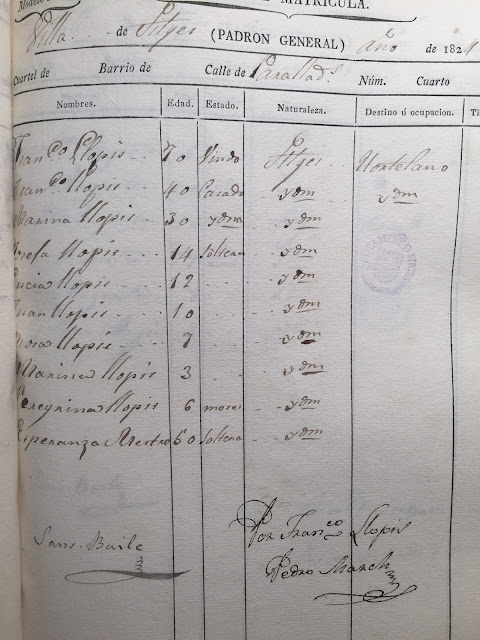 MATRICULA.
Villa de Sitges (PADRON GENERAL) año de 1824
Cuartel de Barrio de Calle de Parallads. Núm. Cuarto
Nombres. Edad. Estado. Naturaleza. Destino ú ocupacion.
Franco Llopis 70 Viudo Sitges Hortelano
Franco Llopis 40 Casado ydm ydm
Marina Llopis 30 ydm ydm
Josefa Llopis 14 soltera ydm
Lucia Llopis 12 ydm
Juan Llopis 10 ydm
Rosa Llopis 7 ydm
Marina Llopis 3 ydm
Peregrina Llopis 6 meses ydm
Esperanza Mestre 60 soltera ydm
Por Franco Llopis
Sans Baile
Pedro March